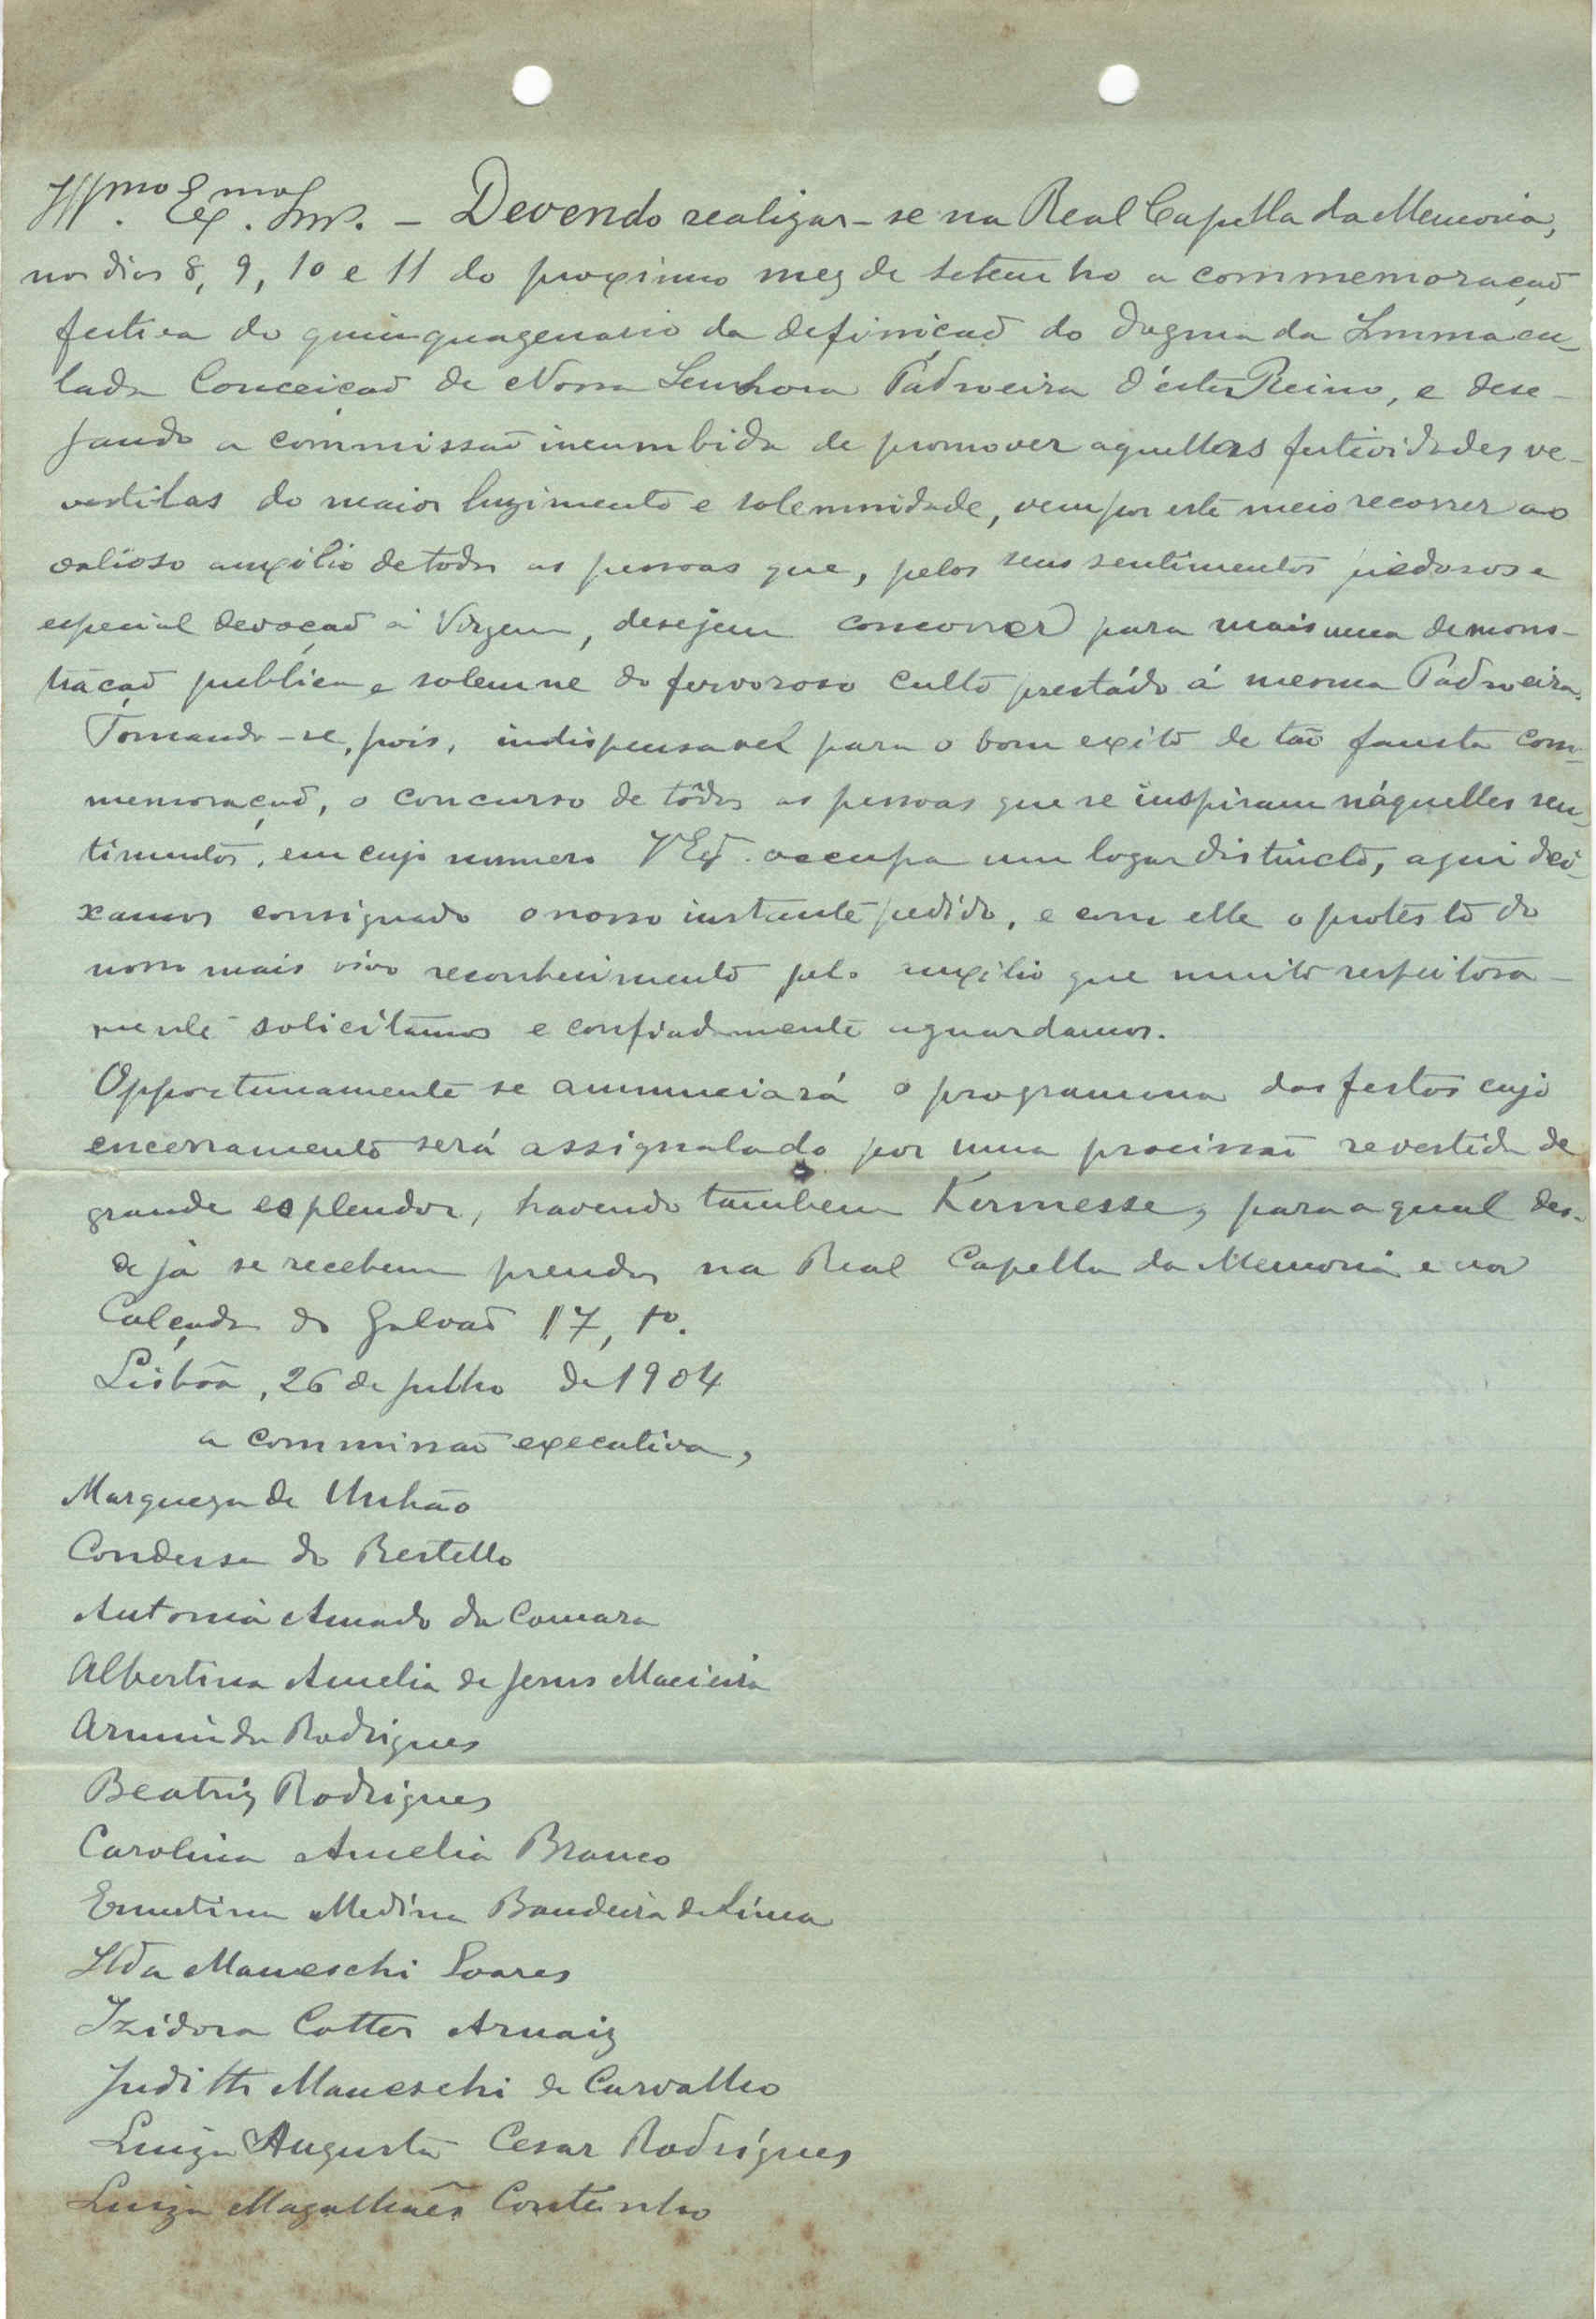 Illmo. Exmo. Snr. — Devendo realizar-se na Real Capella da Memoria,
nos dias 8, 9, 10 e 11 do proximo mez de setembro a commemoração
festiva do quinquagenario da definição do dogma da Immacu-
lada Conceição de Nossa Senhora Padroeira d'este Reino, e dese-
jando a commissão incumbida de promover aquellas festividades re-
vestil-as do maior luzimento e solemnidade, vem por este meio recorrer ao
valioso auxilio de todas as pessoas que, pelos seus sentimentos piedosos e
especial devoção á Virgem, desejem concorrer para mais uma demons-
tração publica e solemne do fervoroso culto prestado á mesma Padroeira.
Tornando-se, pois, indispensavel para o bom exito de tão fausta com-
memoração, o concurso de todas as pessoas que se inspiram n'aquelles sen-
timentos, em cujo numero V Exª. occupa um logar distincto, aqui dei-
xamos consignado o nosso instante pedido, e com elle o protesto do
nosso mais vivo reconhecimento pelo auxilio que muito respeitosa-
mente solicitamos e confiadamente aguardamos.
Opportunamente se annunciará o programma das festas cujo
encerramento será assignalado por uma procissão revestida de
grande esplendor, havendo tambem Kermesse, para a qual des-
de já se recebem prendas na Real Capella da Memoria e na
Calçada do Galvão 17, 1º.
Lisbôa, 26 de julho de 1904
a commissão executiva,
Marqueza de Unhão
Condessa do Restello
Antonia Amado da Camara
Albertina Amelia de Jesus Macieira
Arminda Rodrigues
Beatriz Rodrigues
Carolina Amelia Branco
Ernestina Medina Bandeira de Lima
Ilda Maneschi Soares
Izidora Cotter Arnaiz
Judith Maneschi de Carvalho
Luiza Augusta Cesar Rodrigues
Luiza Magalhães Coutinho